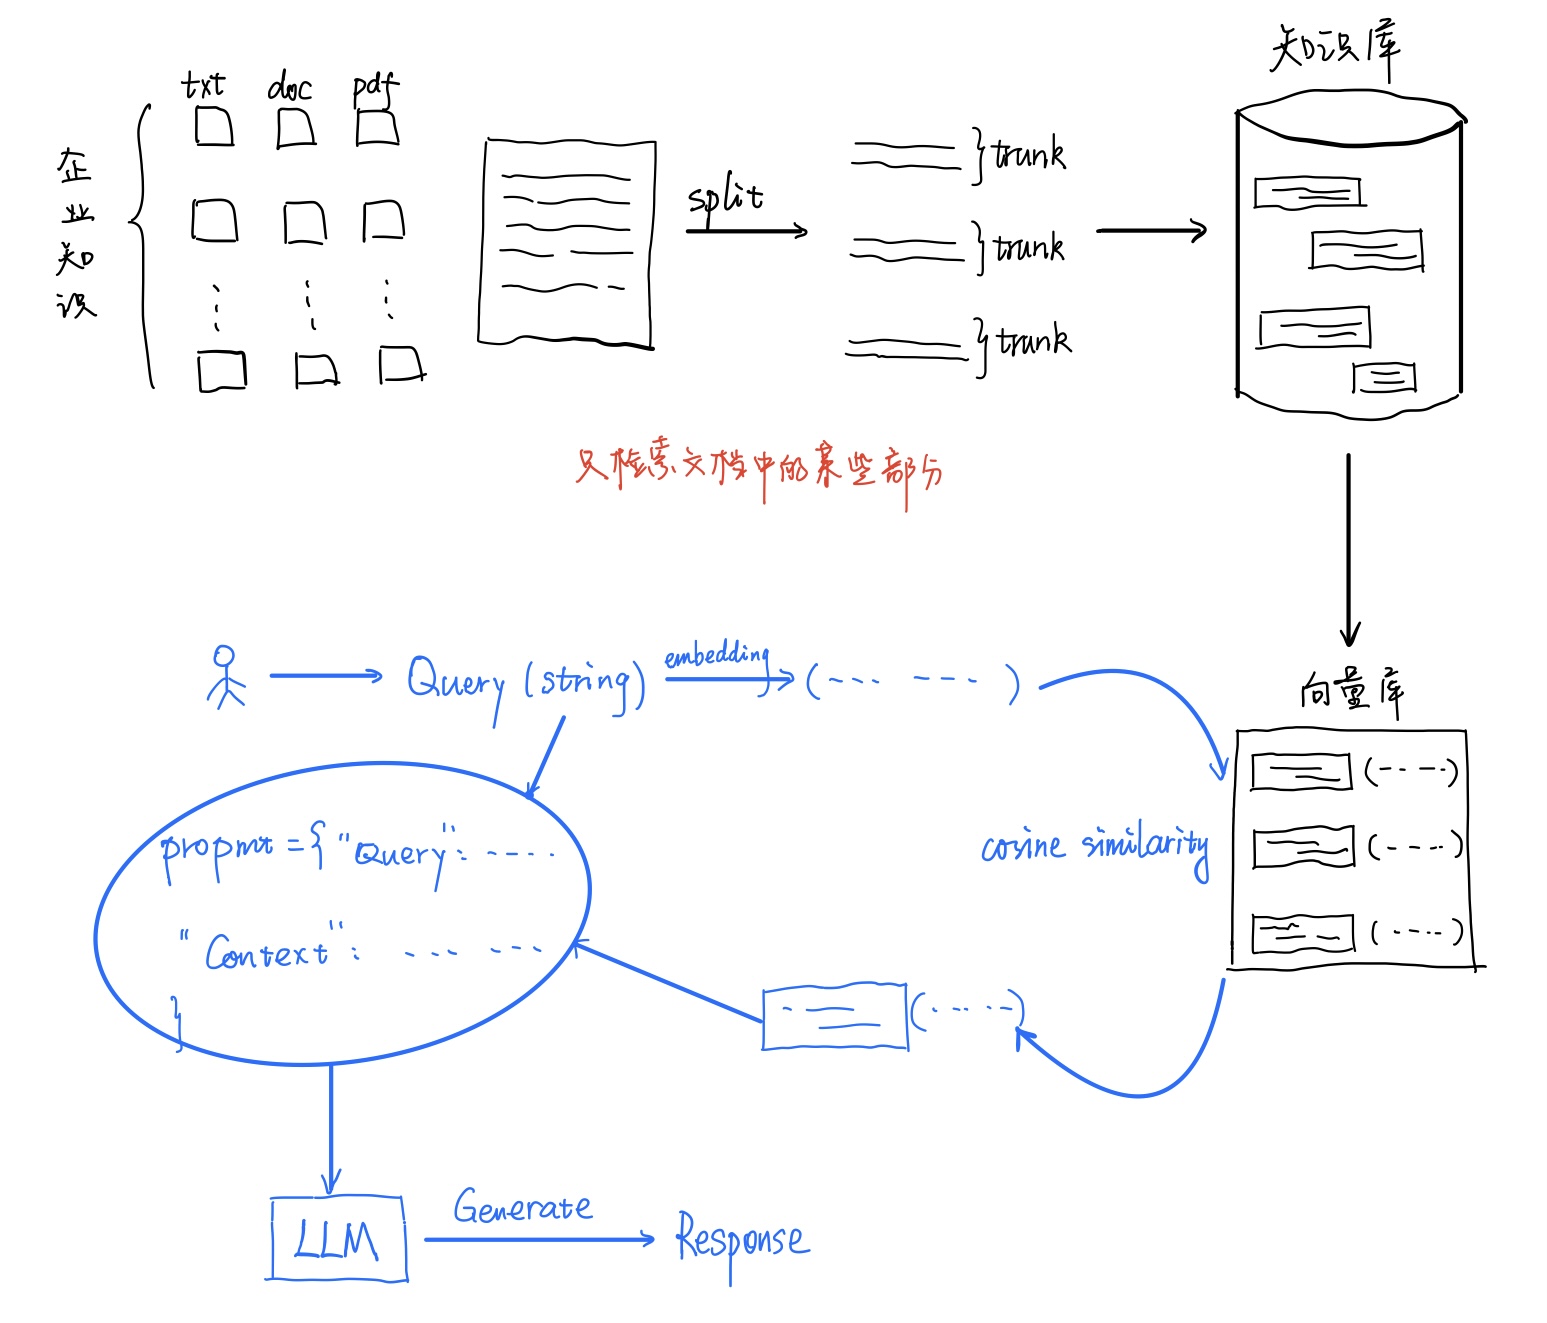 知识库
txt doc pdf
企业知设
split
trunk
trunk
trunk
只检索文档中的某些部分
Query (string)
embedding
(---- ----)
向量库
(-----)
(-----)
(-----)
cosine similarity
propmt = { "Query": -----
"Context": ... ....
}
(-----)
LLM
Generate
Response